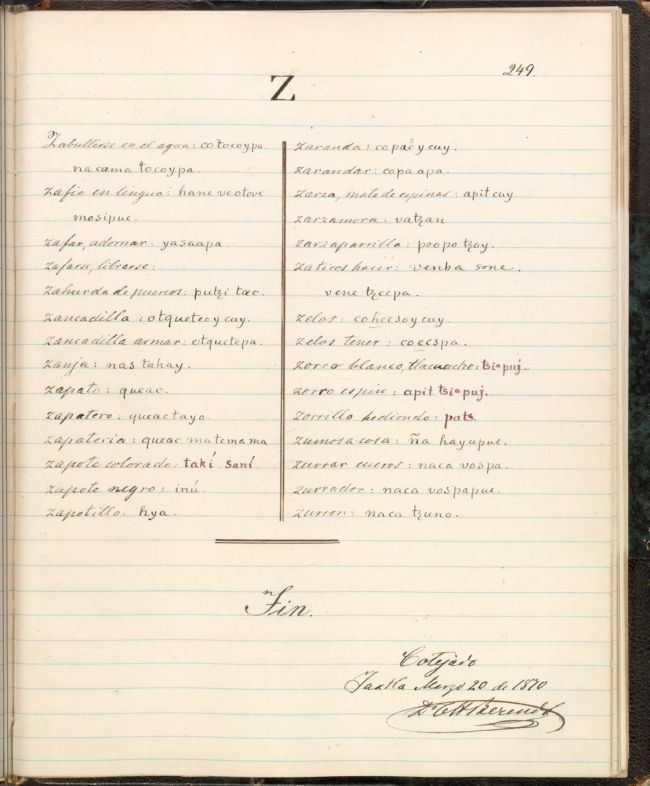 249.
Z
Zabullirse en el agua: cotocoypa.
nacama tocoypa.
zafio en lingua: hane veotove
mosipue.
zafar, adornar: yasaapa.
zafarse, librarse:
zahurda de puercos: putzi tæc.
zancadilla: otqueteoycuy.
zancadilla armar: otquetepa.
zanja: nas tahay.
zapato: queac.
zapatero: queactayo.
zapateria: queac matemama
zapote colorado: takí saní
zapote negro: inú.
zapotillo: hya.
zaranda: copaoycuy.
zarandar: copaapa.
zarza, mata de espinas: apitcuy
zarzamora: vatzan
zarzaparrilla: poopo tzoy.
zaticos hacer: venba sone.
vene tzecpa.
zelos: coheesoycuy.
zelos tener: coecspa.
zorro blanco, tlacuache: tsiapuj.
zorro espin: apit tsiapuj.
Zorrillo hediondo: pats
zumosa cosa: ña hayupue.
zurrar cueros: naca vospa.
zurrador: naca vospapue.
zurron: naca tzuno.
Fin.
Cotejado
Tuxtla Marzo 20 de 1870
Dr CHBerendt